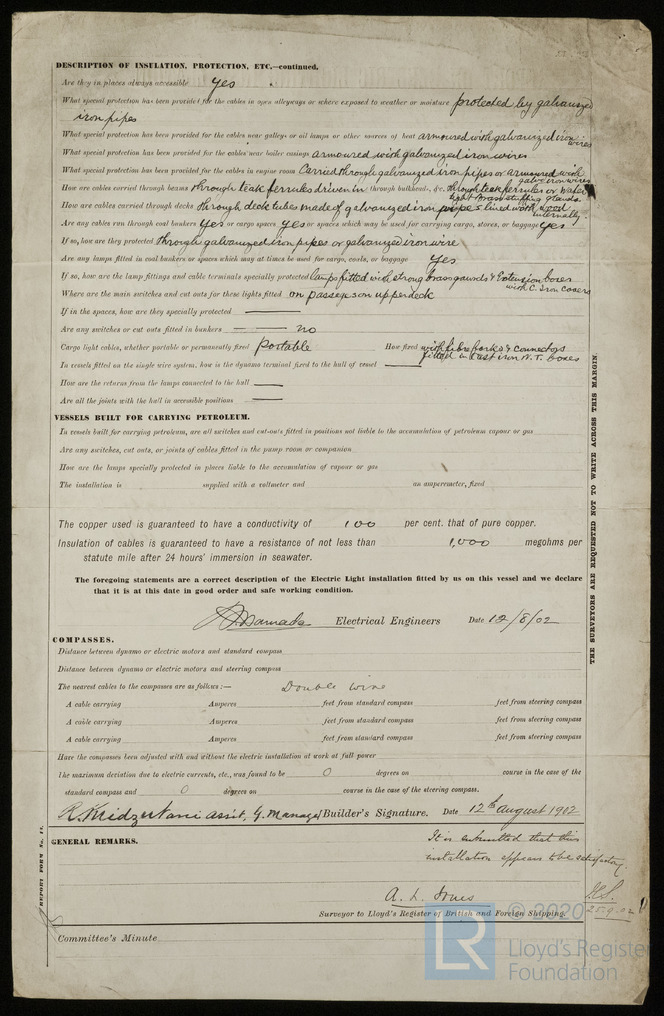 DESCRIPTION OF INSULATION, PROTECTION, ETC.—continued.
Are they in places always accessible yes
What special protection has been provided for the cables in open alleyways or where exposed to weather or moisture protected by galvanized
iron pipes
What special protection has been provided for the cables near galleys or oil lamps or other sources of heat armoured with galvanized iron wires
What special protection has been provided for the cables near boiler casings armoured with galvanized iron wires
What special protection has been provided for the cables in engine room Carried through galvanized iron pipes or armoured with galv iron wires
How are cables carried through beams through teak ferrules driven in through bulkheads, &c. through teak ferrules or water tight brass stuffing glands
How are cables carried through decks through deck tubes made of galvanized iron pipes lined with wood internally
Are any cables run through coal bunkers yes or cargo spaces yes or spaces which may be used for carrying cargo, stores, or baggage yes
If so, how are they protected through galvanized iron pipes or galvanized iron wire
Are any lamps fitted in coal bunkers or spaces which may at times be used for cargo, coals, or baggage yes
If so, how are the lamp fittings and cable terminals specially protected lamps fitted with strong brass guards & Extension boxes with C. Iron covers
Where are the main switches and cut outs for these lights fitted on upper deck
If in the spaces, how are they specially protected
Are any switches or cut outs fitted in bunkers no
Cargo light cables, whether portable or permanently fixed Portable How fixed with fibre forks & connectors
fitted in Cast iron W. T. boxes
In vessels fitted on the single wire system, how is the dynamo terminal fixed to the hull of vessel
How are the returns from the lamps connected to the hull
Are all the joints with the hull in accessible positions
VESSELS BUILT FOR CARRYING PETROLEUM.
In vessels built for carrying petroleum, are all switches and cut-outs fitted in positions not liable to the accumulation of petroleum vapour or gas
Are any switches, cut outs, or joints of cables fitted in the pump room or companion
How are the lamps specially protected in places liable to the accumulation of vapour or gas
The installation is supplied with a voltmeter and an amperemeter, fixed
The copper used is guaranteed to have a conductivity of 100 per cent. that of pure copper.
Insulation of cables is guaranteed to have a resistance of not less than 1,000 megohms per
statute mile after 24 hours' immersion in seawater.
The foregoing statements are a correct description of the Electric Light installation fitted by us on this vessel and we declare
that it is at this date in good order and safe working condition.
Electrical Engineers Date 12/8/02
COMPASSES.
Distance between dynamo or electric motors and standard compass
Distance between dynamo or electric motors and steering compass
The nearest cables to the compasses are as follows:— Double wire
A cable carrying Amperes feet from standard compass feet from steering compass
A cable carrying Amperes feet from standard compass feet from steering compass
A cable carrying Amperes feet from standard compass feet from steering compass
Have the compasses been adjusted with and without the electric installation at work at full power
The maximum deviation due to electric currents, etc., was found to be 0 degrees on course in the case of the
standard compass and 0 degrees on course in the case of the steering compass.
assist, G. Manager Builder's Signature. Date 12th august 1902
GENERAL REMARKS.
It is submitted that this
installation appears to be satisfactory.
A. L. Jones
Surveyor to Lloyd's Register of British and Foreign Shipping.
25.9.02
Committee's Minute
THE SURVEYORS ARE REQUESTED NOT TO WRITE ACROSS THIS MARGIN.
REPORT FORM No.
© 2020
LR
Lloyd's Register
Foundation